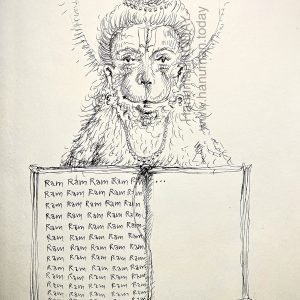 www.hanuman.today
Ram Ram Ram Ram Ram ...
Ram Ram Ram Ram Ram
Ram Ram Ram Ram Ram
Ram Ram Ram Ram Ram
Ram Ram Ram Ram Ram
Ram Ram Ram Ram Ram
Ram Ram Ram Ram Ram
Ram Ram Ram Ram Ram
Ram Ram Ram Ram Ram
Ram Ram Ram Ram Ram